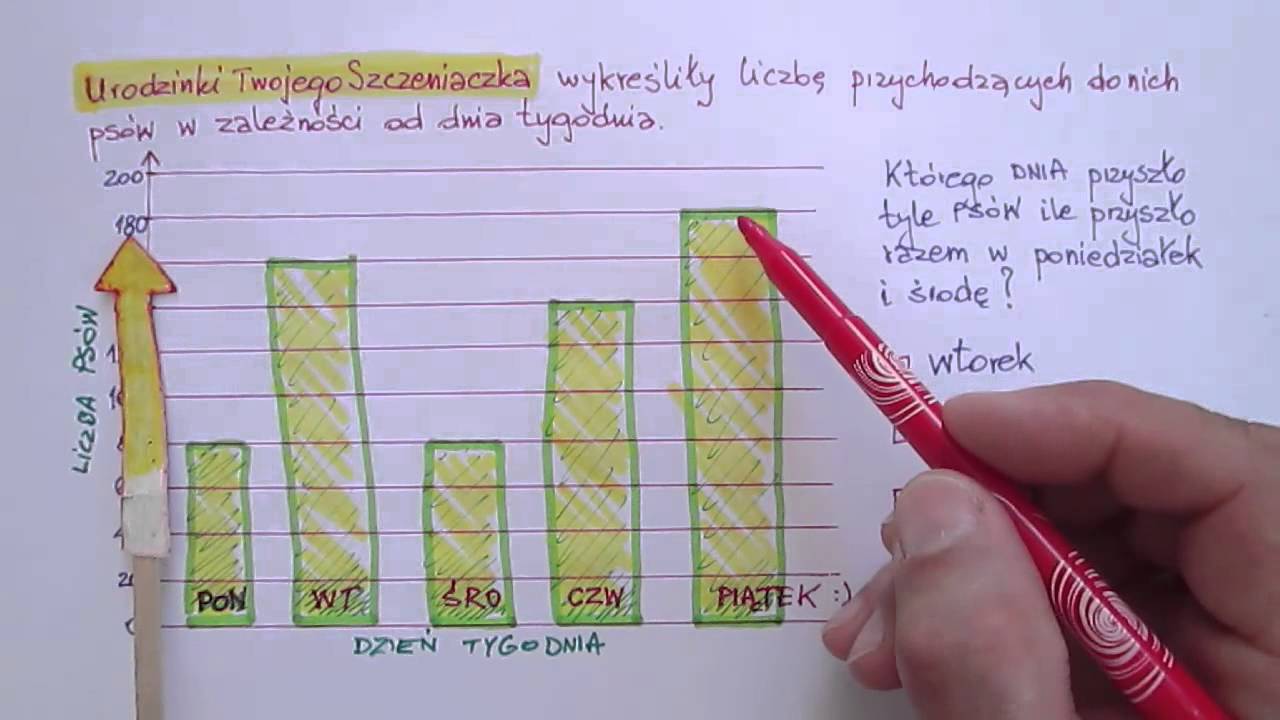 Urodzinki Twojego Szczeniaczka wykreśliły liczbę przychodzących do nich
psów w zależności od dnia tygodnia.
200
180
20
LICZBA PSÓW
PON WT ŚRO CZW PIĄTEK :)
DZIEŃ TYGODNIA
Którego DNIA przyszło
tyle PSÓW ile przyszło
razem w poniedziałek
i środę?
wtorek